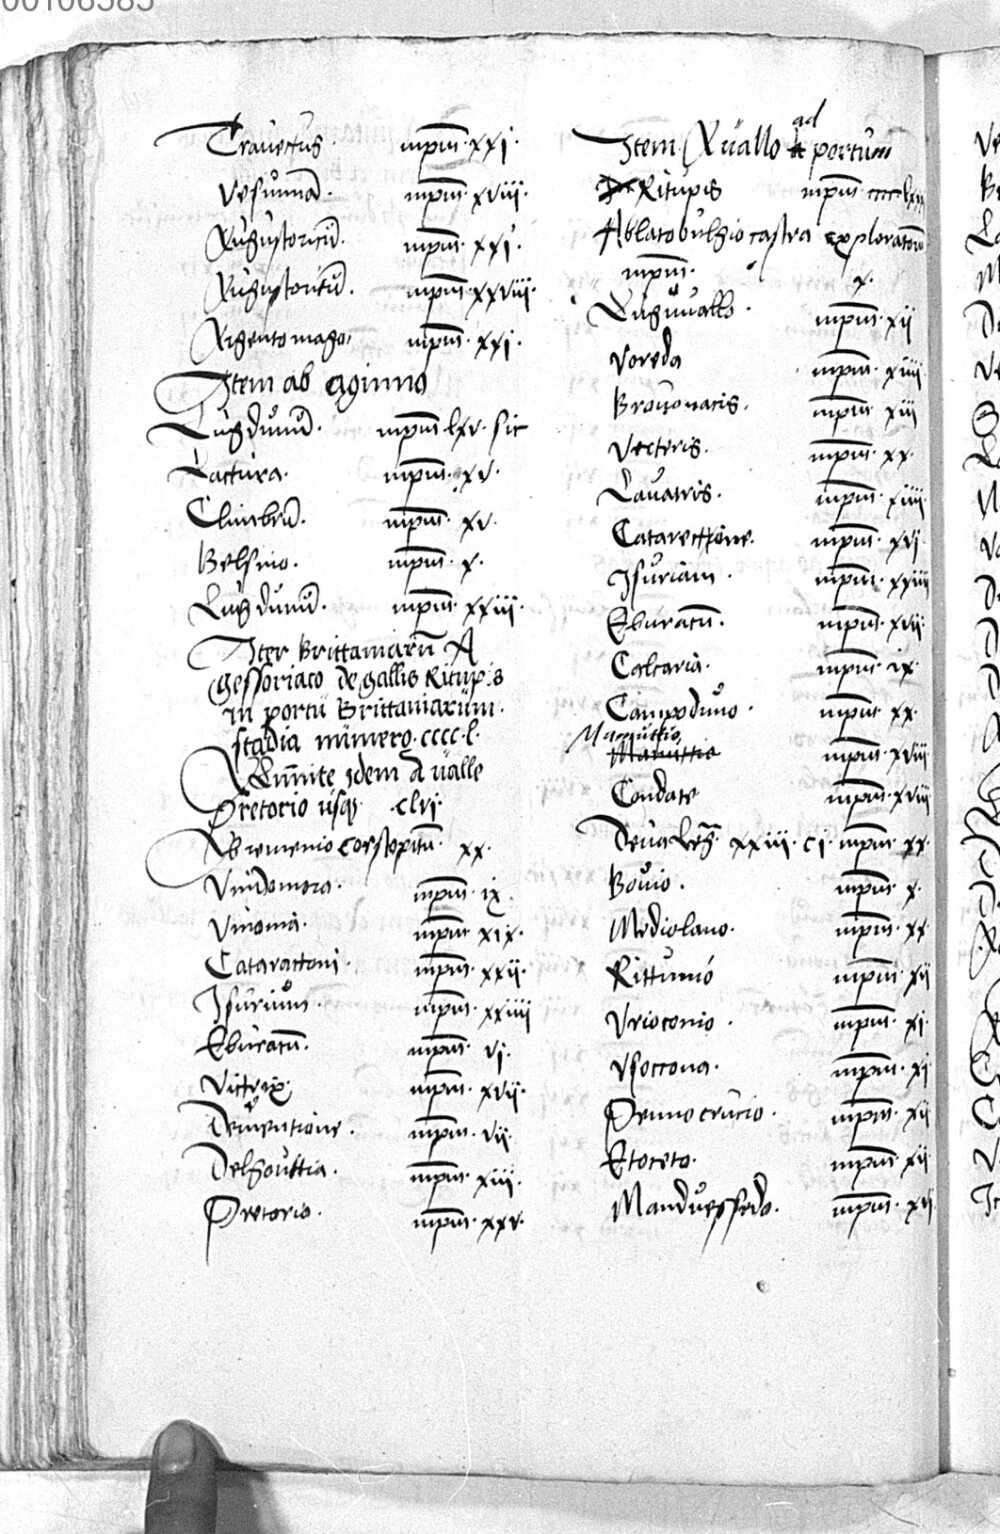 Travectus. mpm̄. xxi.
Vesunna. mpm̄. xviii.
Augustoricū. mpm̄. xxi.
Augustoritū. mpm̄. xxviii.
Argentomago. mpm̄. xxi.
Item ab aginno
Lugdunū. mpm̄. lxv. sic
Lactura. mpm̄. xv.
Climbrū. mpm̄. xv.
Belsino. mpm̄. x.
Lugdunū. mpm̄. xxiii.
Iter Brittaniarū A
gessoriaco de gallis Ritupis
in portu Brittaniarum.
stadia numero. cccc. l.
A Limite idem a ualle
Pretorio usq; clvi.
Ab remenio corstopitū. xx.
Vindomora. mpm̄. ix.
Vinonia. mpm̄. xix.
Catarattoni. mpm̄. xxii.
Isurium. mpm̄. xxiiii
Eburacū. mpm̄. vi.
Victrix. mpm̄. xvii.
Deruentione. mpm̄. vii.
Delgouitia. mpm̄. xiii.
Pretorio. mpm̄. xxv.
Item. A uallo ad portum
Ritupis mpm̄ cccclxxx
Ablatobulgio castra exploratorū
mpm̄. x.
Luguuallo. mpm̄. xii
Voreda mpm̄. xiiii
Brouonacis. mpm̄. xiii
Verteris. mpm̄. xx.
Lavatris. mpm̄. xiiii
Catarectone. mpm̄. xvi
Isuriam. mpm̄. xxiiii
Eburacū. mpm̄. xvii
Calcaria. mpm̄. ix
Campoduno. mpm̄. xx
Mamuttio
Mamuttio mpm̄. xviii
Condate mpm̄. xviii
Deua Leg̅. xxiii. ci. mpm̄. xx
Bouio. mpm̄. x.
Mediolano. mpm̄. xx
Rittunio mpm̄. xii
Vrioconio. mpm̄. xi
Vsoccona. mpm̄. xi
Pennocrucio. mpm̄. xii
Etoceto. mpm̄. xii
Manduessedo. mpm̄. xvi